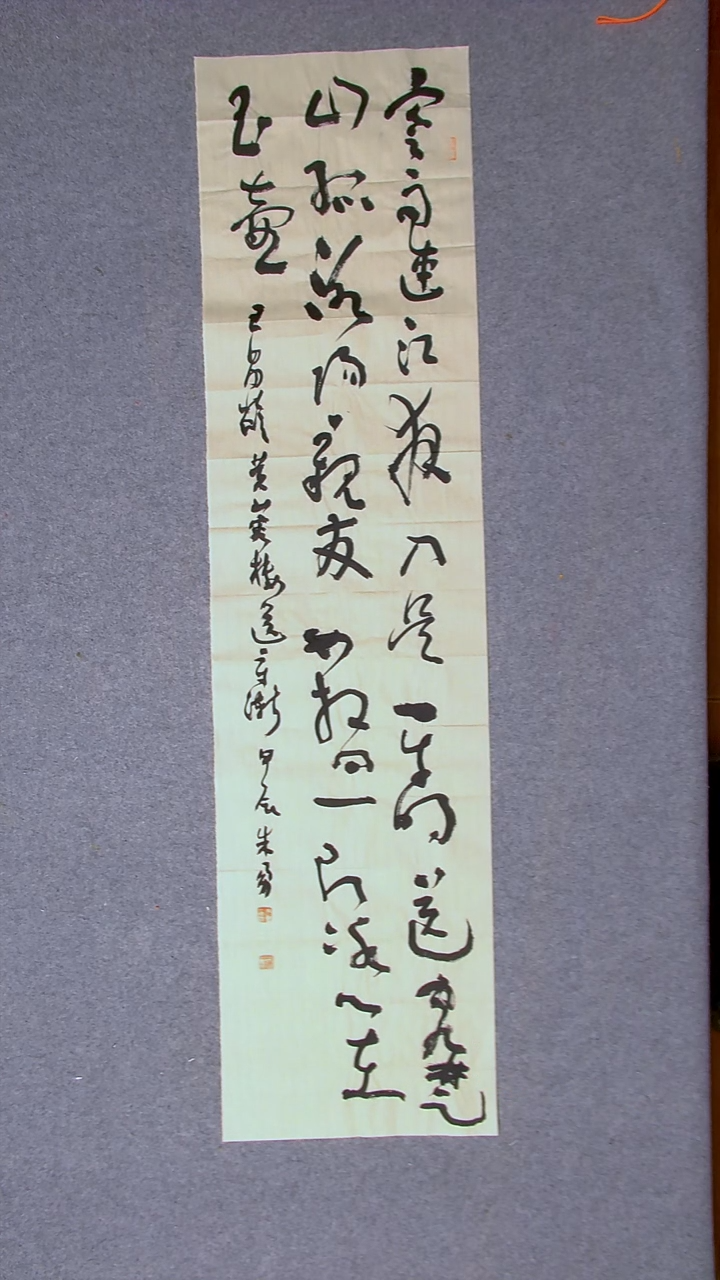 寒雨連江夜入吴平明送客楚
山孤洛陽親友如相问一片冰心在
玉壺 王昌龄芙蓉楼送辛漸 甲辰朱